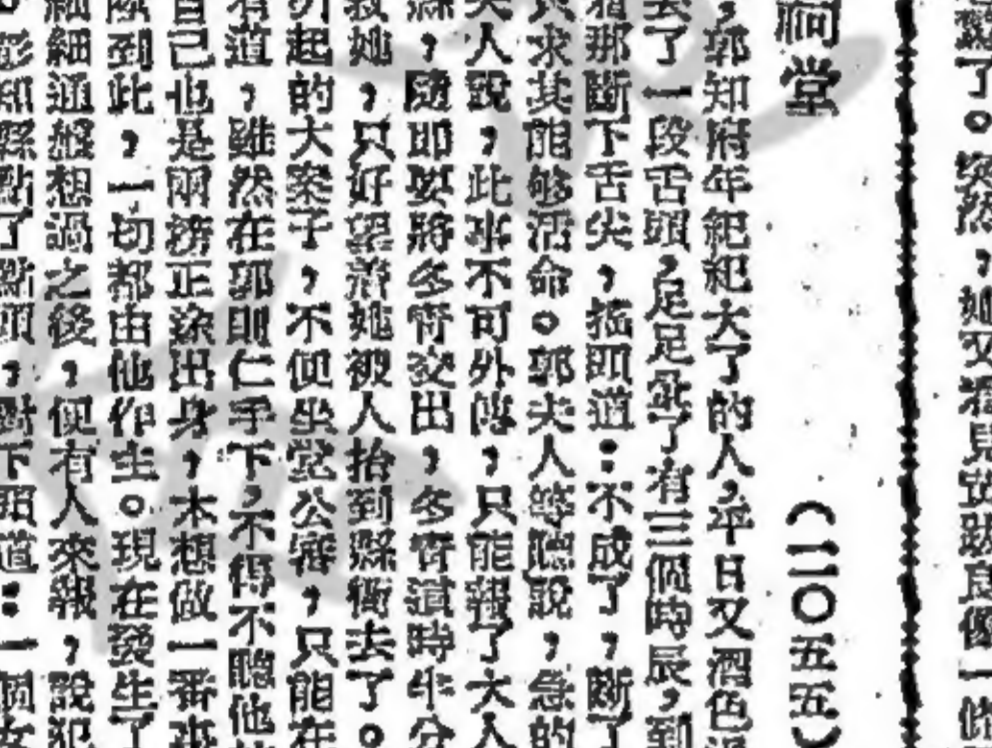 點了。突然，她又看見黃跋良像一條
祠堂
（二〇五五）
，郭知府年紀大了的人，平日又酒色
去了一段舌頭，足足齊了有三個時辰，到
着那斷下舌尖，搖頭道：不成了，斷了
只求其能够活命。郭夫人等聽說，急的
夫人說，此事不可外傳，只能報了大人
縣，隨即要將冬齊交出，冬齊這時半分
救她，只好望着她被人抬到縣衙去了。
切起的大案子，不便坐堂公審，只能在
有道，雖然在郭則仁手下，不得不聽他
自己也是兩榜正途出身，本想做一番事
陳到此，一切都由他作主。現在發生了
細細通盤想過之後，便有人來報，說犯
彭知縣點了點頭，對下頭道：一個女